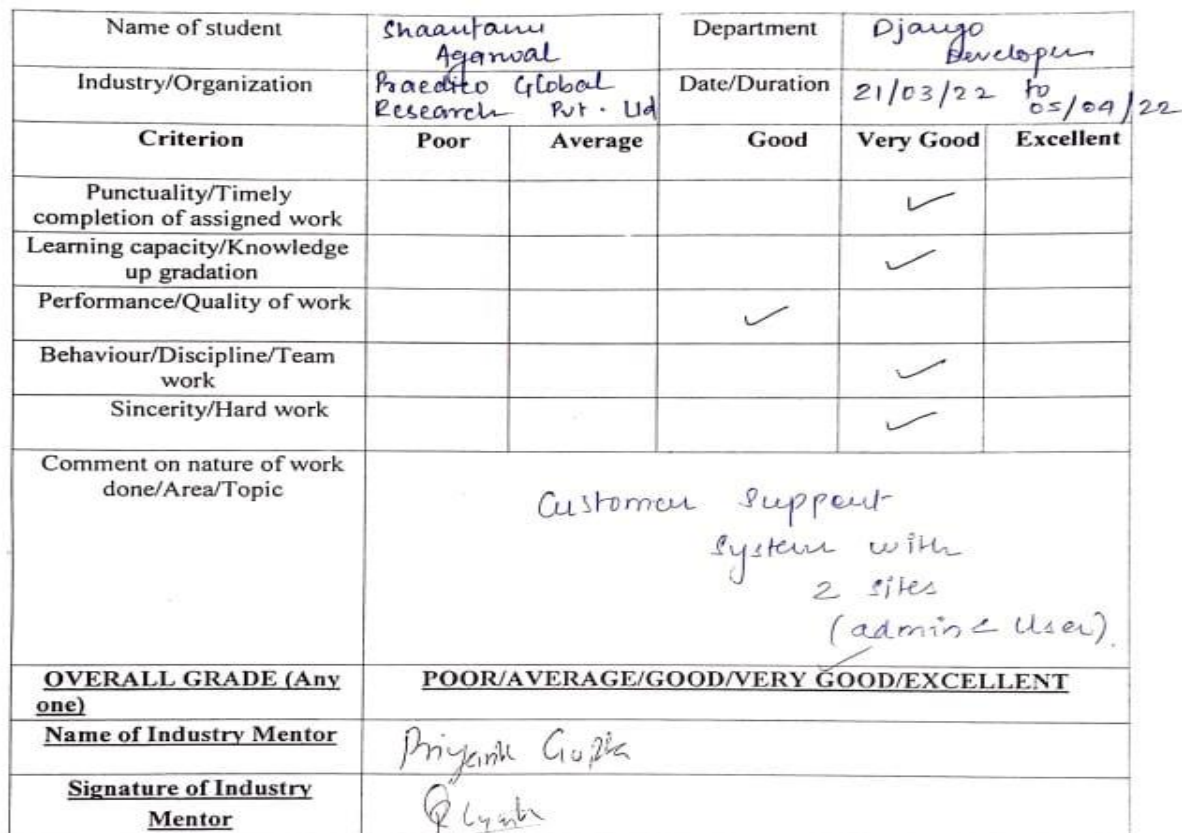 Name of student Shaantanu Department Django
Agarwal Developer
Industry/Organization Praedico Global Date/Duration 21/03/22 to
Research Pvt. Ltd 05/04/22
Criterion Poor Average Good Very Good Excellent
Punctuality/Timely
completion of assigned work ✓
Learning capacity/Knowledge
up gradation ✓
Performance/Quality of work ✓
Behaviour/Discipline/Team
work ✓
Sincerity/Hard work ✓
Comment on nature of work
done/Area/Topic
Customer Support
System with
2 sites
(admin & User).
OVERALL GRADE (Any
one)
POOR/AVERAGE/GOOD/VERY GOOD/EXCELLENT
Name of Industry Mentor Priyank Gupta
Signature of Industry
Mentor